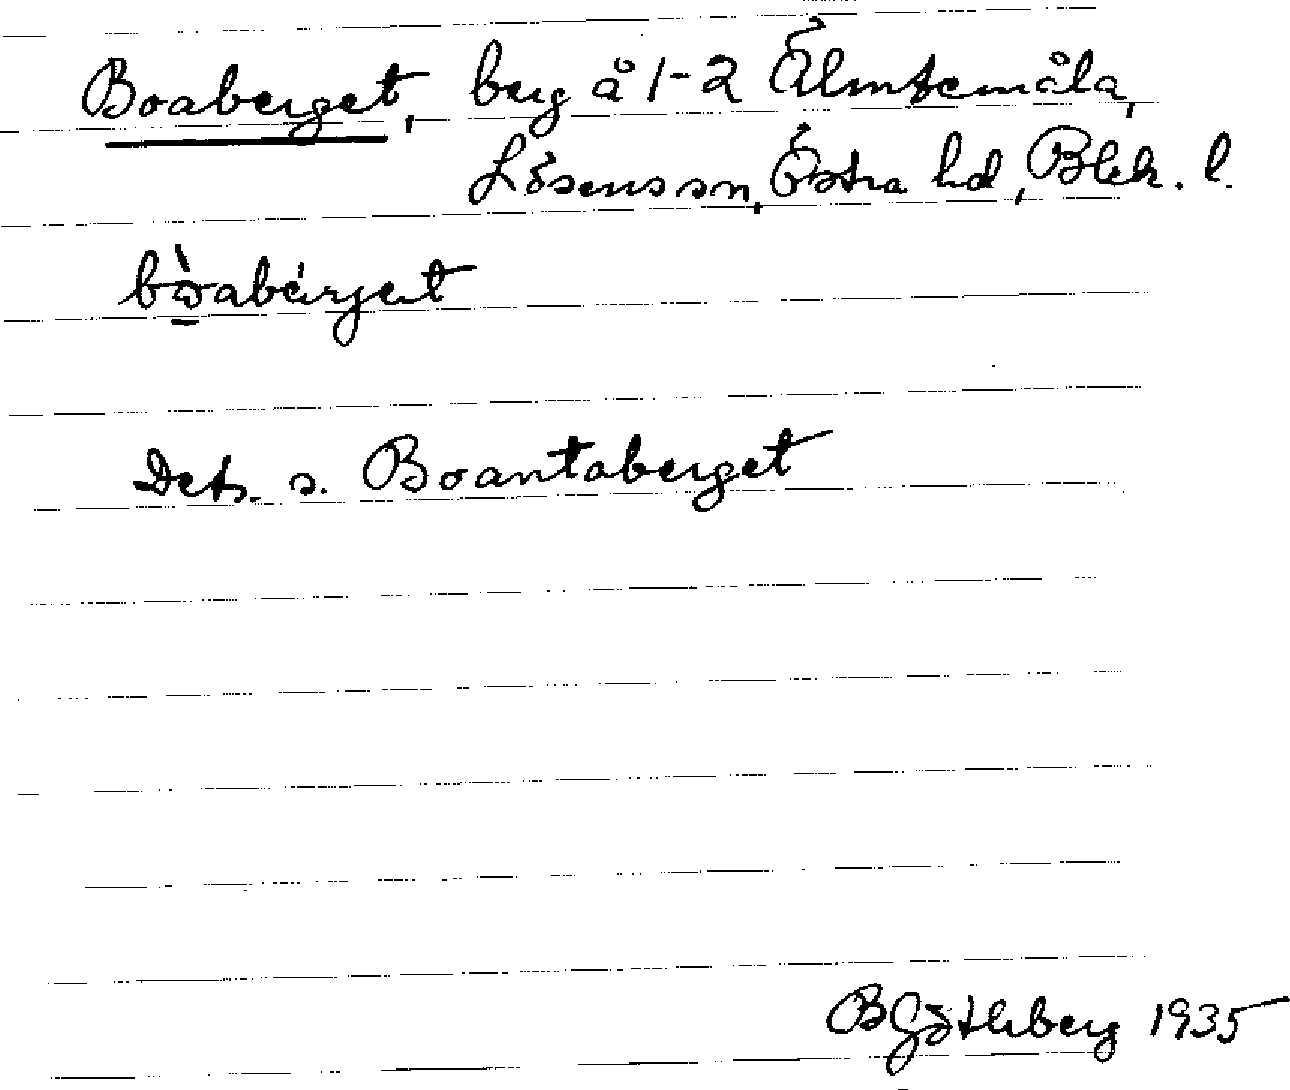 Boaberget, berg å 1-2 Älmtemåla,
Lösens sn, Östra hd, Blek. l.
bòabærjet
Dets. s. Boantaberget
B Götheberg 1935